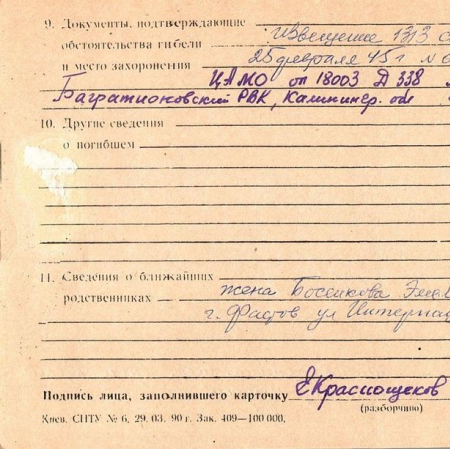 9. Документы, подтверждающие Извещение 1313
обстоятельства гибели 25 февраля 45 г. №
и место захоронения ЦАМО оп 18003 Д 338
Багратионовский РВК, Калинингр. обл
10. Другие сведения
о погибшем
11. Сведения о ближайших
родственниках жена
г. Фастов ул Интернац
Подпись лица, заполнившего карточку Е Краснощеков
(разборчиво)
Киев. СПТУ № 6, 29. 03. 90 г. Зак. 409—100 000.